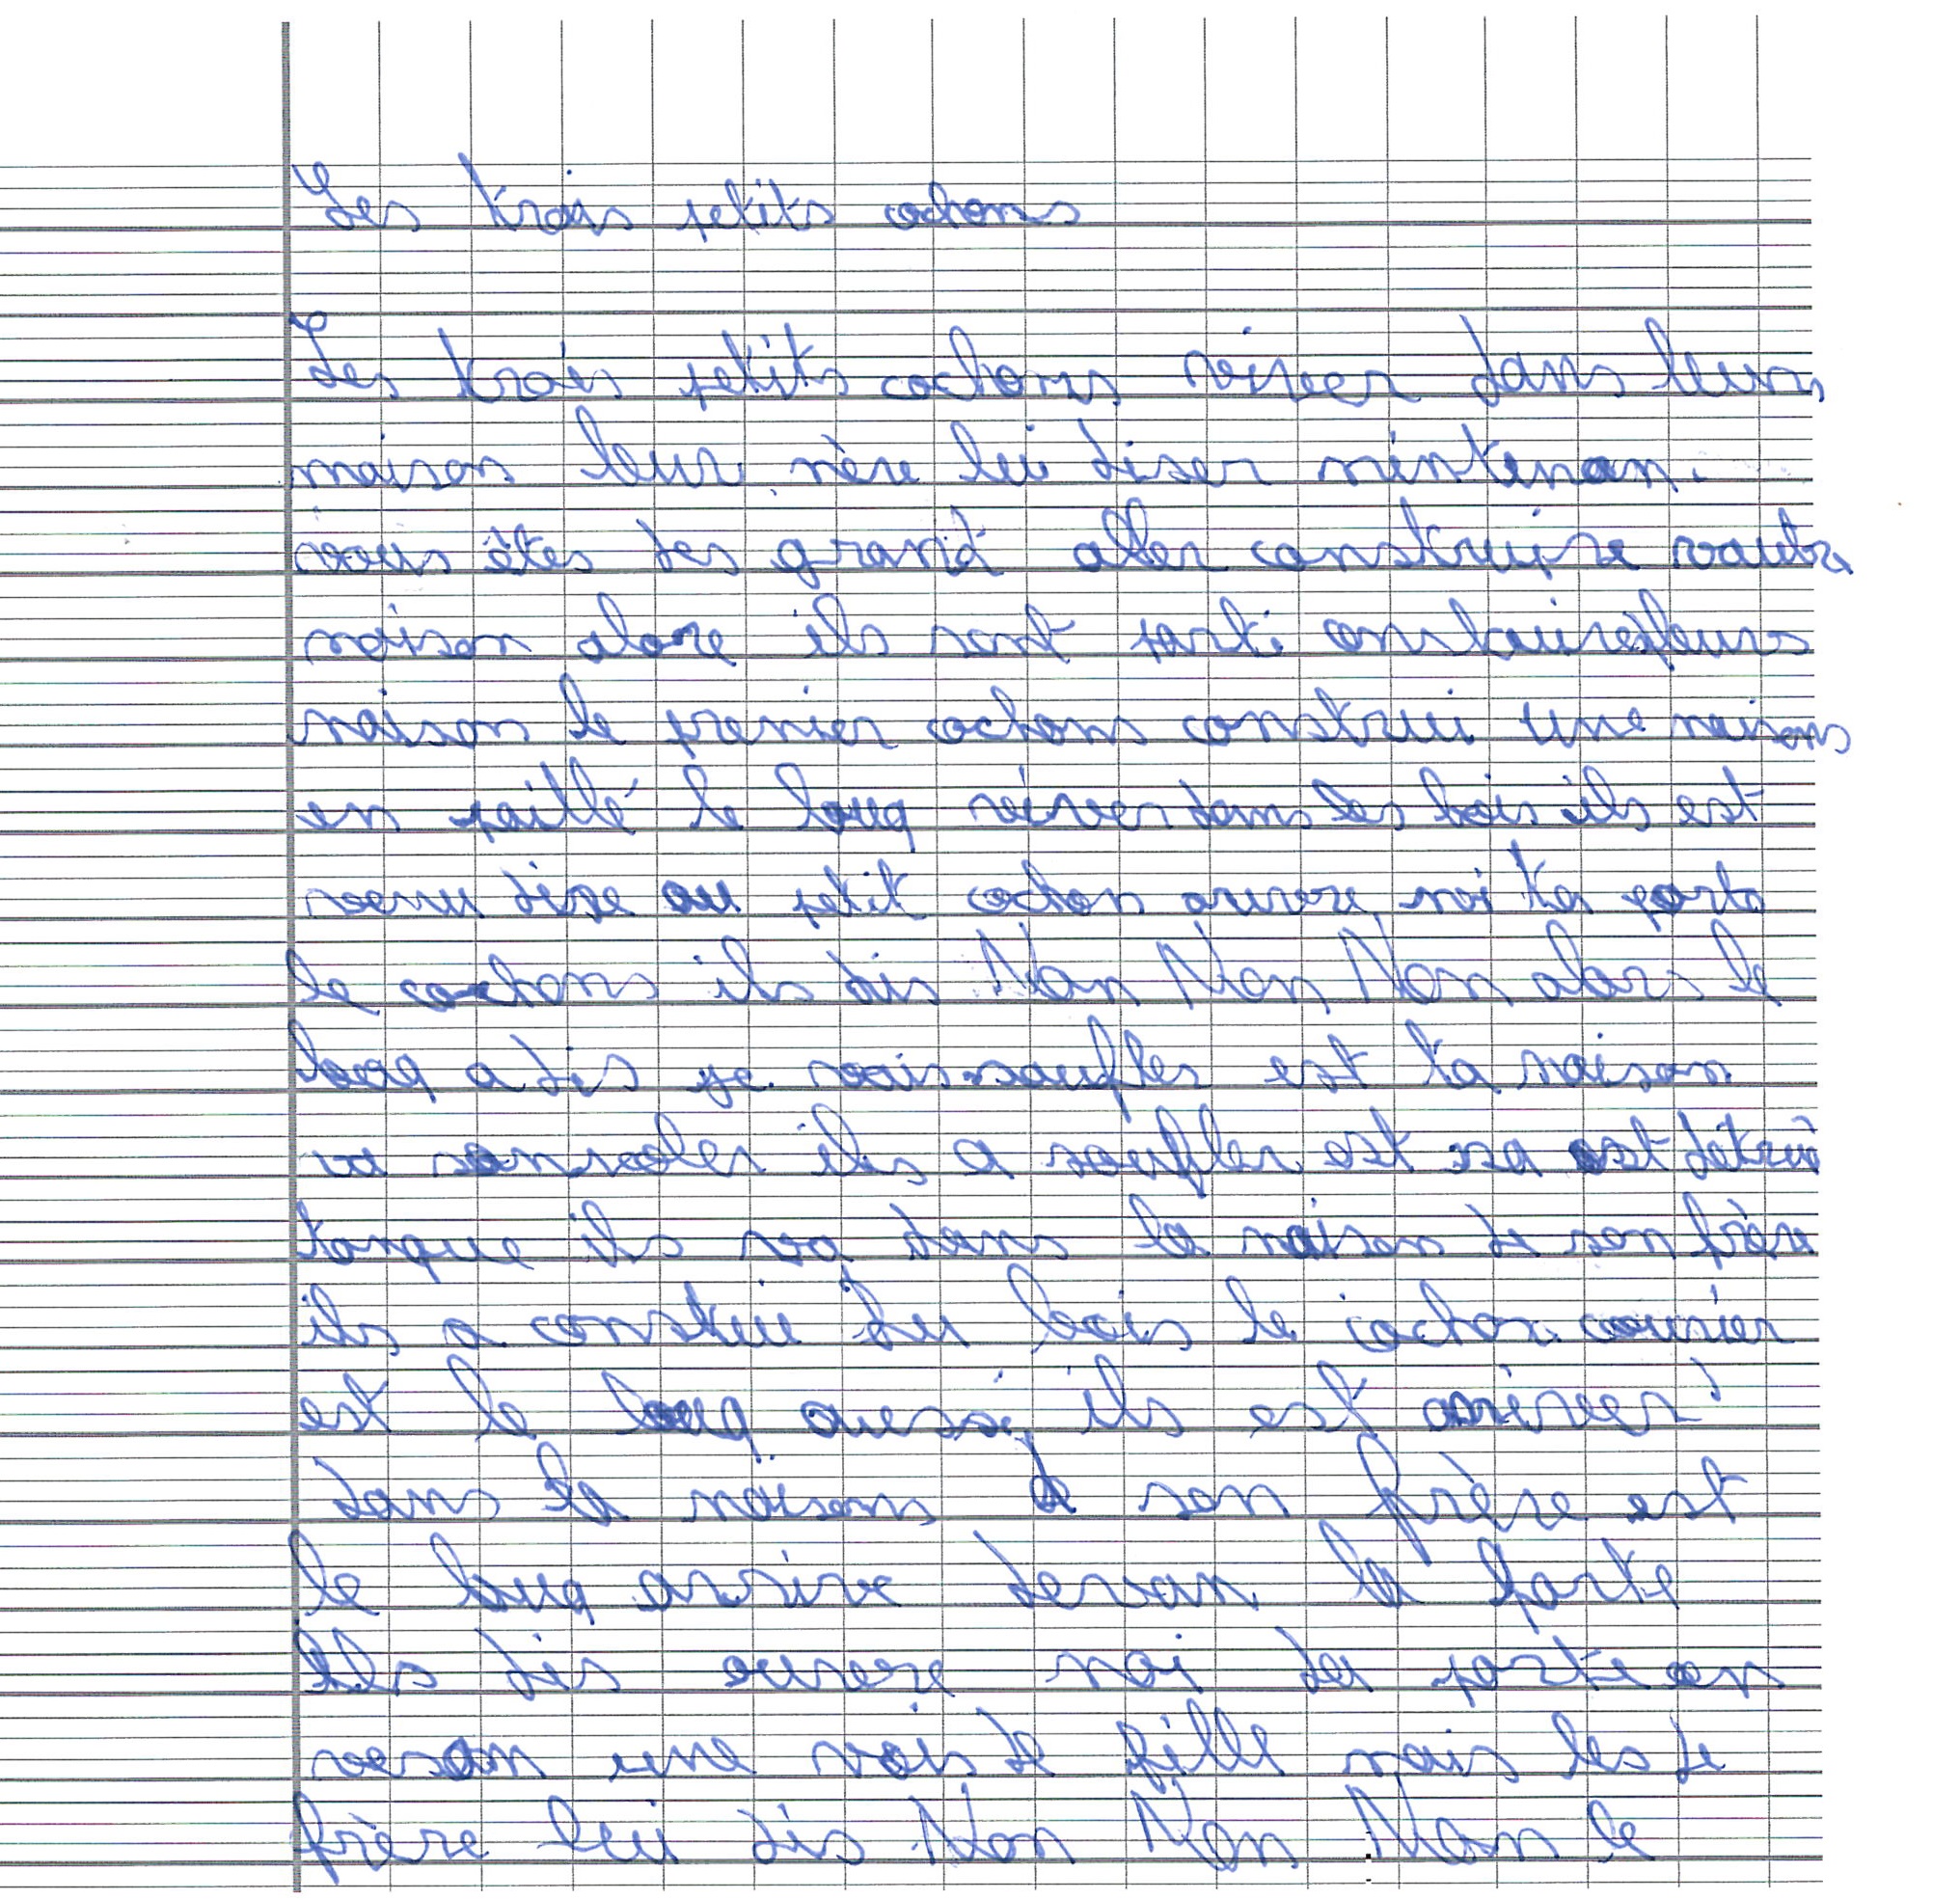 Les trois petits cochons
Les trois petits cochons viver dans leurs
maison leur mère lui diser mintenan
vous êtes des grand aller construire vautre
maison alore ils sont parti leurs
maison le premier cochons construi une maisons
en paillé le loup viver dans les bois ils est
venu dire au petit cochon ouvre moi ta porte
le cochons ils dis Non Non Non alors le
loup a dis je vais soufler est ta maison
va sanvoler ils a soufler est sa est détrui
ils va dans la maison de son frère
ils a constui du bois le cochon courier
est le loup aussi ils est arriver
dans la maisons de son frère est
le loup arrive devan la porte
ils dis ouvre moi ta porte en
une vois de fille mais les de
frère lui dis Non Non Non le